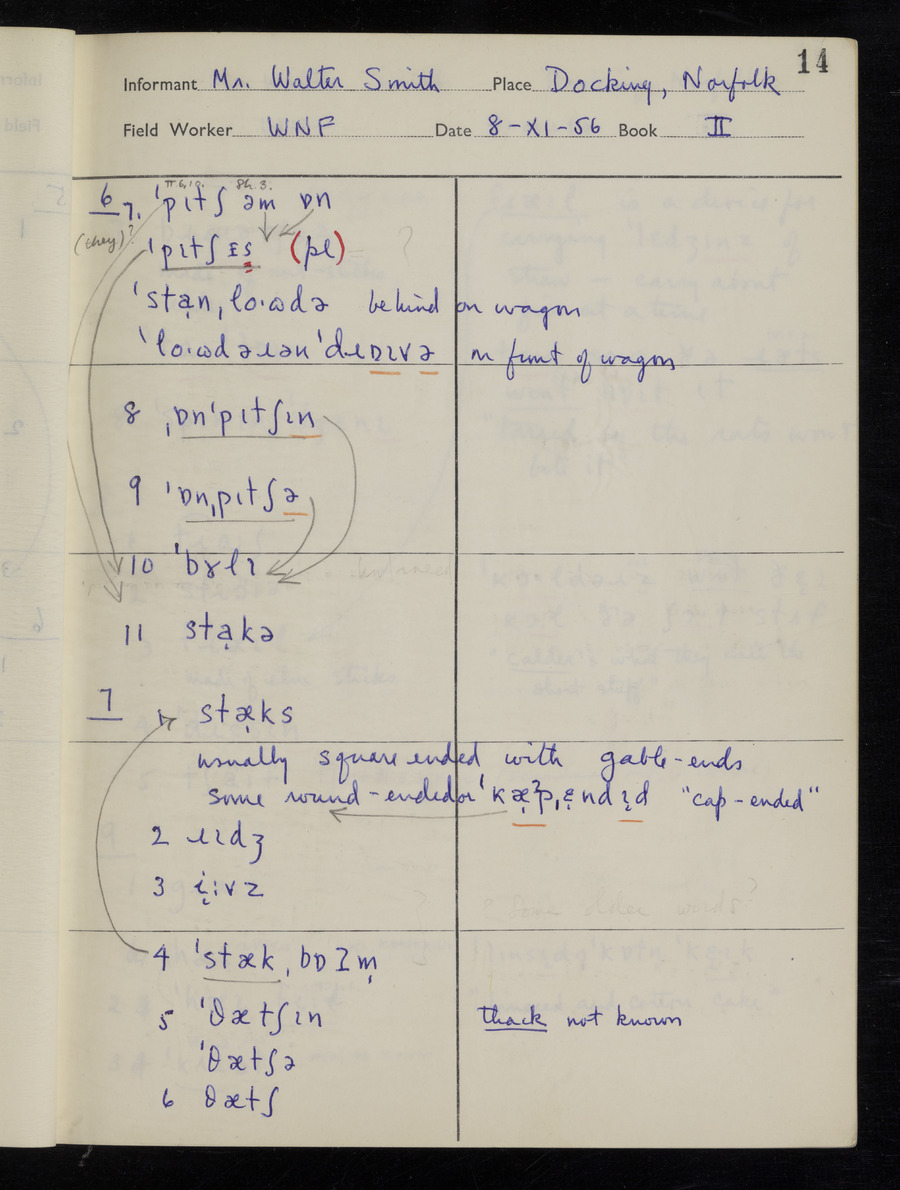 14
Informant Mr. Walter Smith Place Docking, Norfolk
Field Worker WNF Date 8-XI-56 Book II
6 7. ˈpɪtʃ əm ɒn
(they)? ˈpɪtʃɪs (pl) ?
ˈstan,lo·ωdə behind on wagon
ˈlo·ωdəɹənˈdɹɒɪvə in front of wagon
8 ˌɒnˈpɪtʃɪn
9 ˈɒnˌpɪtʃə
10 ˈbɤlɪ
11 stạkə
7 1. stæ̣ks
usually square ended with gable-ends
some round-ended or ˈkæ̣ʔpˌɛ̣ndɪ̣d "cap-ended"
2 ɹɪdʒ
3 ị:vz
4 ˈstækˌbɒɪm̩
5 ˈθætʃɪn thack not known
ˈθætʃə
6 θætʃ